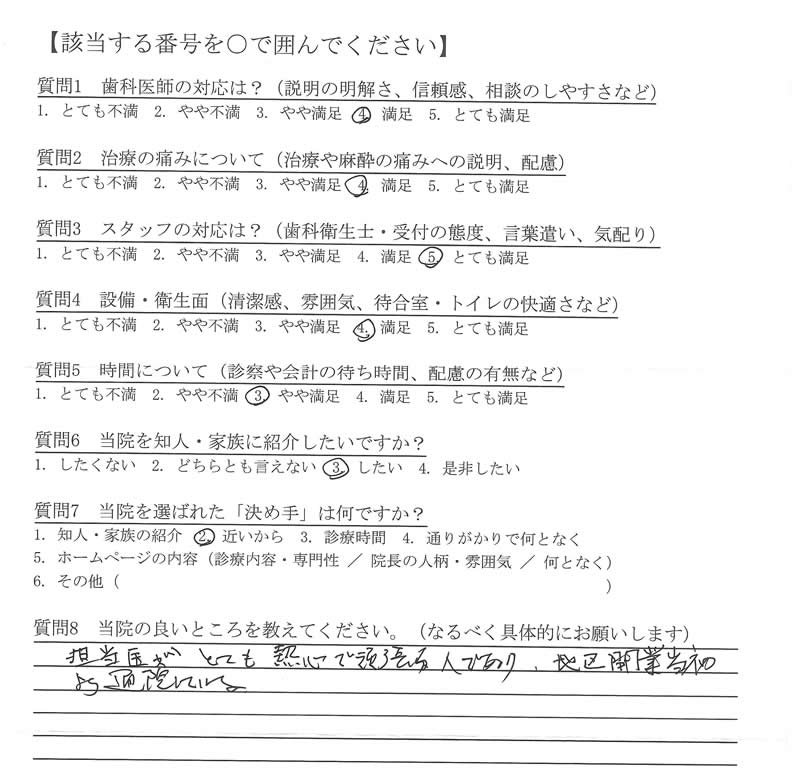 【該当する番号を○で囲んでください】
質問1 歯科医師の対応は？（説明の明解さ、信頼感、相談のしやすさなど）
1. とても不満 2. やや不満 3. やや満足 4. 満足 5. とても満足
質問2 治療の痛みについて（治療や麻酔の痛みへの説明、配慮）
1. とても不満 2. やや不満 3. やや満足 4. 満足 5. とても満足
質問3 スタッフの対応は？（歯科衛生士・受付の態度、言葉遣い、気配り）
1. とても不満 2. やや不満 3. やや満足 4. 満足 5. とても満足
質問4 設備・衛生面（清潔感、雰囲気、待合室・トイレの快適さなど）
1. とても不満 2. やや不満 3. やや満足 4. 満足 5. とても満足
質問5 時間について（診察や会計の待ち時間、配慮の有無など）
1. とても不満 2. やや不満 3. やや満足 4. 満足 5. とても満足
質問6 当院を知人・家族に紹介したいですか？
1. したくない 2. どちらとも言えない 3. したい 4. 是非したい
質問7 当院を選ばれた「決め手」は何ですか？
1. 知人・家族の紹介 2. 近いから 3. 診療時間 4. 通りがかりで何となく
5. ホームページの内容（診療内容・専門性 ／ 院長の人柄・雰囲気 ／ 何となく）
6. その他（ ）
質問8 当院の良いところを教えてください。（なるべく具体的にお願いします）
担当医が とても 熱心で頑張る人であり、地区開業当初
より通院している